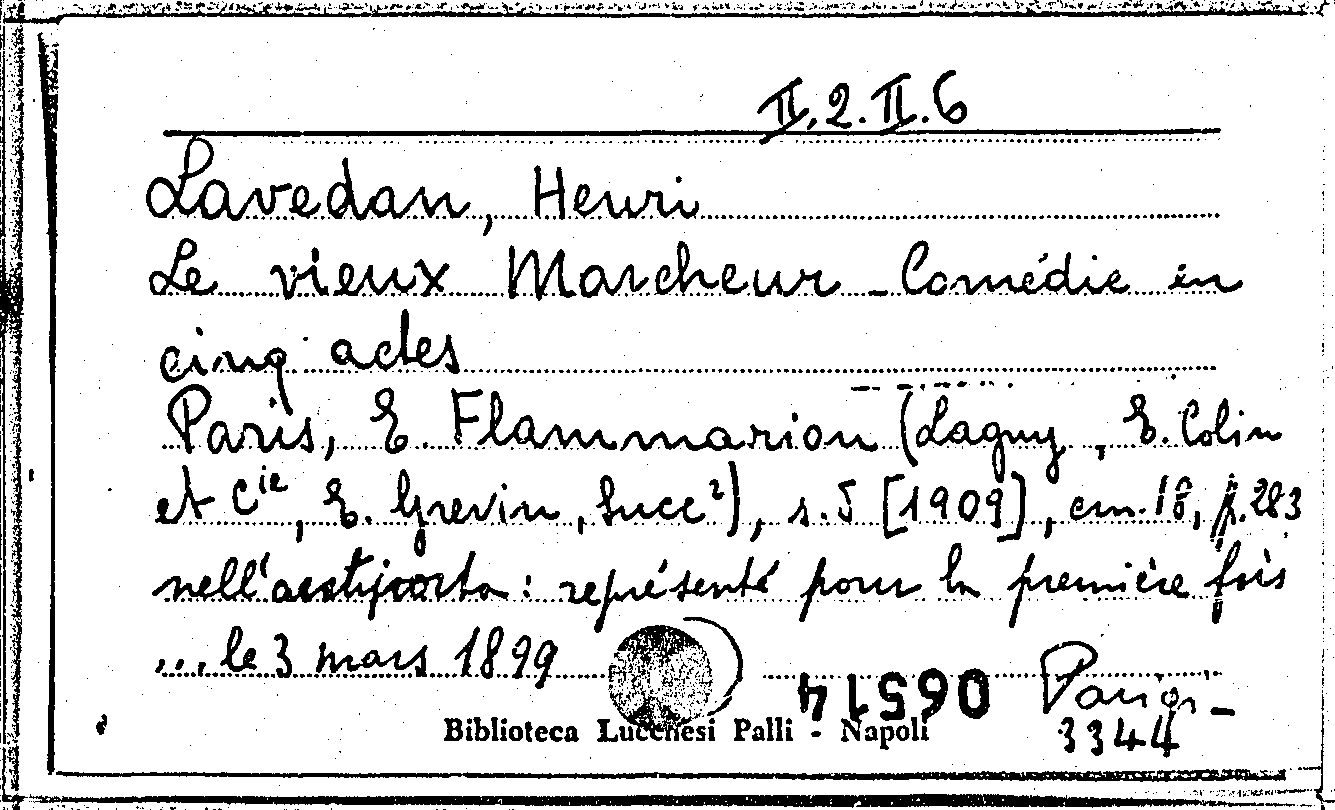 II.2.II.6
Lavedan, Henri
Le vieux Marcheur - Comédie en
cinq actes
Paris, E. Flammarion (Lagny, E. Colin
et Cie, E. Grevin, Succr), s.d [1909], cm. 18, p. 283
nell'antiporta: représenté pour la première fois
... le 3 mars 1899
06514
Parigi -
3344
Biblioteca Lucchesi Palli - Napoli